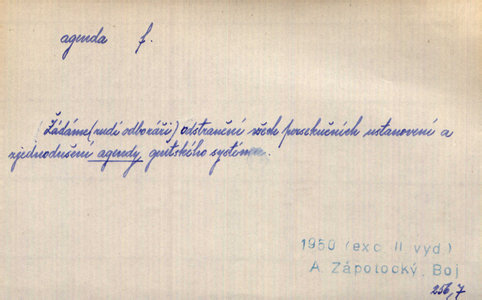 agenda f.
(Žádáme (rudí odboráři) odstranění všech persekučních ustanovení a
zjednodušení agendy gentského systému.
1950 (exc. II. vyd.)
A. Zápotocký, Boj
256,7